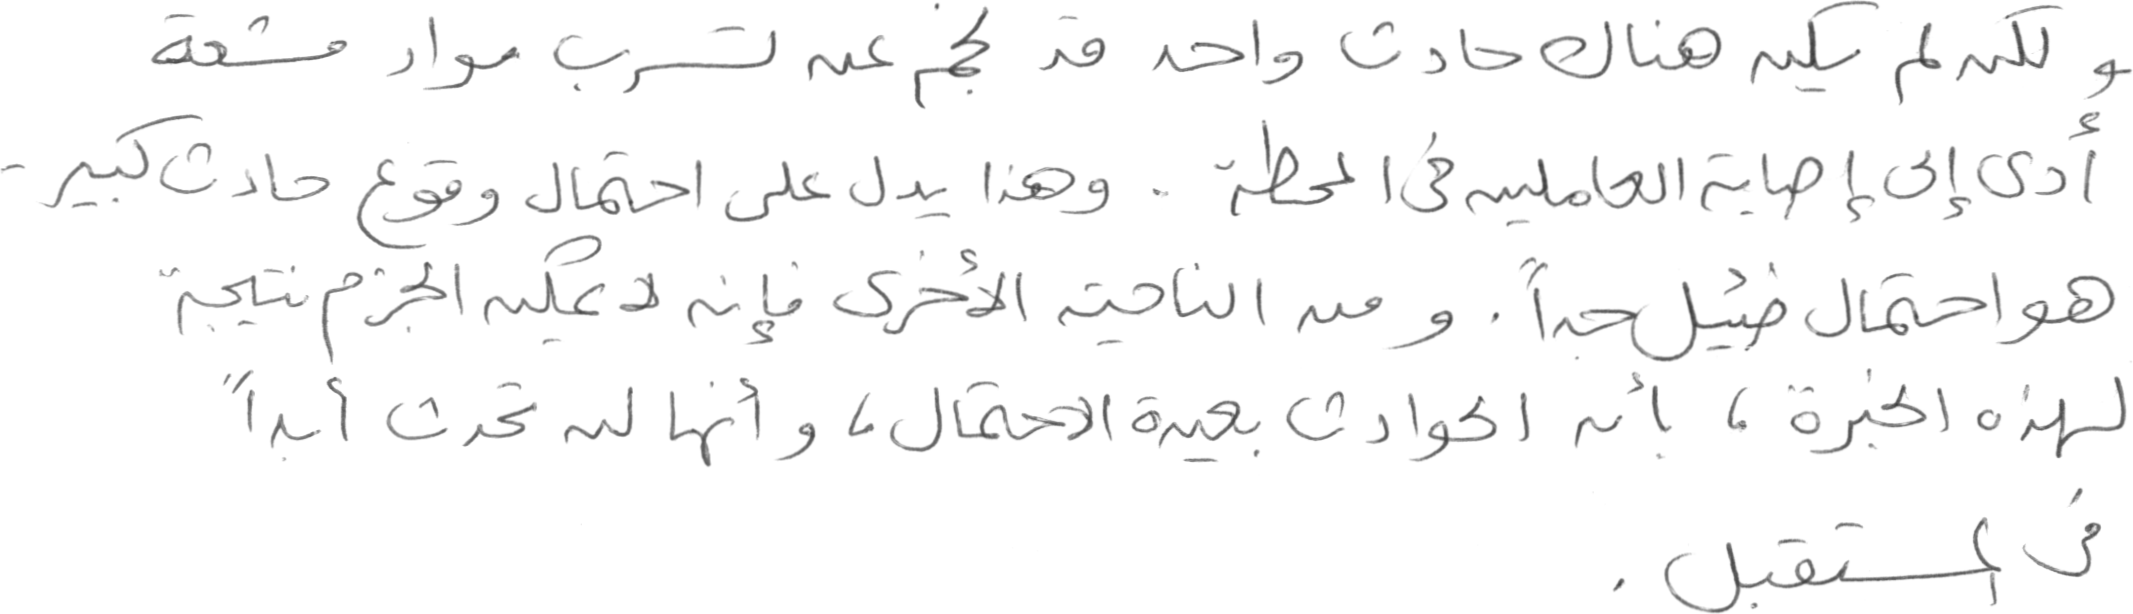 ولكن لم يكن هناك حادث واحد قد نجم عن تسرب مواد مشعة
أدى إلى إصابة العاملين في المحطة . وهذا يدل على احتمال وقوع حادث كبير -
هو احتمال ضئيل جداً . ومن الناحية الأخرى فإنه لا يمكن الجزم نتيجة
لهذه الخبرة ، بأن الحوادث بعيدة الاحتمال ، وأنها لن تحدث أبداً
في المستقبل .